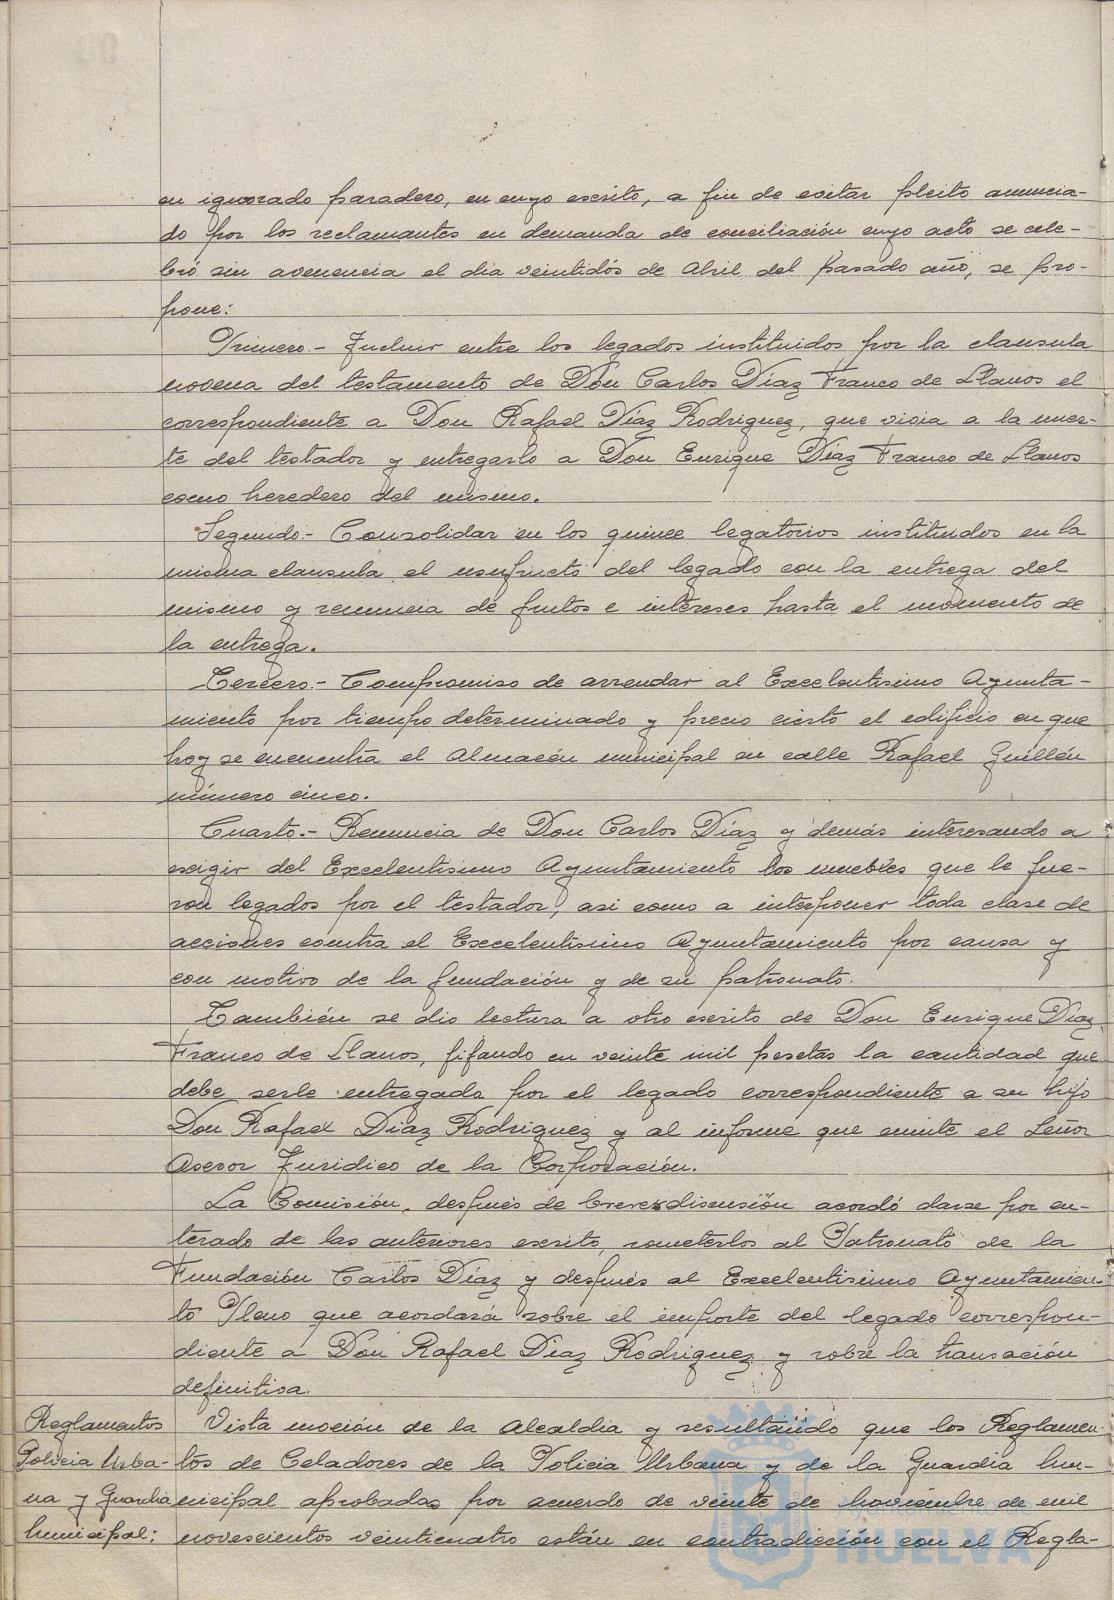 en ignorado paradero, en cuyo escrito, a fin de evitar pleito anuncia-
do por los reclamantes en demanda de conciliación cuyo acto se cele-
bró sin avenencia el dia veintidós de Abril del pasado año, se pro-
pone:
Primero.- Incluir entre los legados instituidos por la clausula
novena del testamento de Don Carlos Díaz Franco de Llanos el
correspondiente a Don Rafael Díaz Rodriguez, que vivia a la muer-
te del testador y entregarlo a Don Enrique Díaz Franco de Llanos
como heredero del mismo.
Segundo.- Consolidar en los quince legatorios instituidos en la
misma clausula el usufructo del legado con la entrega del
mismo y renuncia de frutos e intereses hasta el momento de
la entrega.
Tercero.- Compromiso de arrendar al Excelentisimo Ayunta-
miento por tiempo determinado y precio cierto el edificio en que
hoy se encuentra el Almacén municipal en calle Rafael Guillén
número cinco.
Cuarto.- Renuncia de Don Carlos Díaz y demás interesando a
exigir del Excelentisimo Ayuntamiento los muebles que le fue-
ron legados por el testador, asi como a interponer toda clase de
acciones contra el Excelentisimo Ayuntamiento por causa y
con motivo de la fundación y de su patronato.
Tambien se dio lectura a otro escrito de Don Enrique Díaz
Franco de Llanos, fijando en veinte mil pesetas la cantidad que
debe serle entregada por el legado correspondiente a su hijo
Don Rafael Diaz Rodriguez y al informe que emite el Señor
Asesor Juridico de la Corporación.
La Comisión, después de breve discusión acordó darse por en-
terado de las anteriores escrito, someterlos al Patronato de la
Fundación Carlos Díaz y después al Excelentisimo Ayuntamien-
to Pleno que acordará sobre el importe del legado correspon-
diente a Don Rafael Diaz Rodriguez y sobre la transación
definitiva.
Reglamentos
Policia Urba-
na y Guardia
Municipal:
Vista moción de la Alcaldia y resultando que los Reglamen-
tos de Celadores de la Policia Urbana y de la Guardia Mu-
nicipal aprobados por acuerdo de veinte de Noviembre de mil
novescientos veinticuatro están en contradicción con el Regla-
Ayuntamiento de
HUELVA